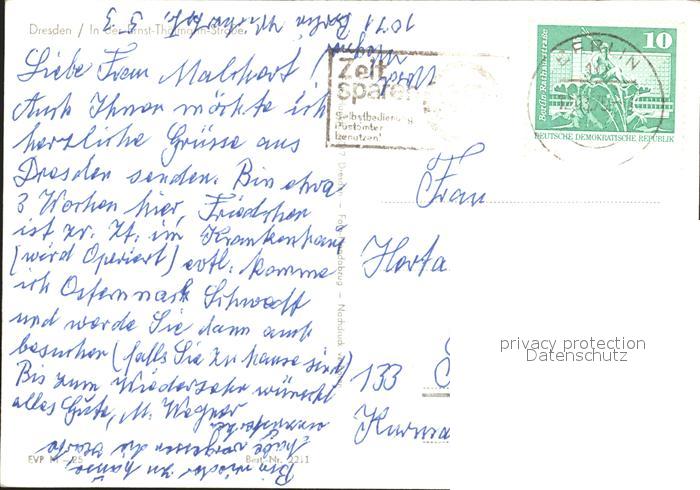 Dresden / In der Ernst-Thälmann-Straße
1071 Berlin
3. 3.
Liebe Frau Malchart!
Auch Ihnen möchte ich
herzliche Grüsse aus
Dresden senden. Bin etwa
3 Wochen hier, Friedchen
ist zr. Zt. im Krankenhaus
(wird Operiert) evtl. komme
ich Ostern nach Schwedt
und werde Sie dann auch
besuchen (falls Sie zu hause sind)
Bis zum Wiedersehn wünscht
alles Gute, M. Wegner
habe vergessen die Karte
Bin wieder zu hause
EVP M -.25
Best-Nr. 2211
Zeit
sparen
Selbstbedienung
Postämter
benutzen!
BERLIN
Berlin, Rathausstraße
10
DEUTSCHE DEMOKRATISCHE REPUBLIK
Frau
Horta
133
privacy protection
Datenschutz